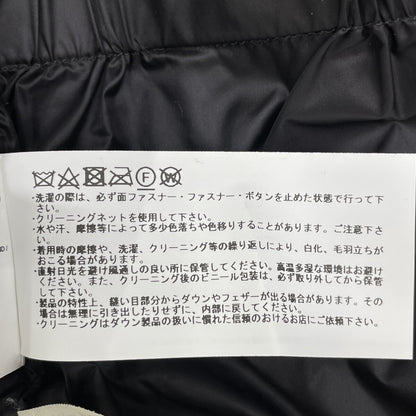 Ⓕ Ⓦ
・洗濯の際は、必ず面ファスナー・ファスナー・ボタンを止めた状態で行って下さい。
・クリーニングネットを使用して下さい。
・水や汗、摩擦等によって多少色落ちや色移りすることがあります。ご注意下さい。
・着用時の摩擦や、洗濯、クリーニング等の繰り返しにより、白化、毛羽立ちがおこる場合があります。
・直射日光を避け風通しの良い所に保管してください。高温多湿な環境はお避けください。また、クリーニング後のビニール包装は、必ず取り外してから保管して下さい。
・製品の特性上、縫い目部分からダウンやフェザーが出る場合があります。その場合は無理に引き出したりせずに、内側に戻して下さい。
・クリーニングはダウン製品の扱いに慣れた信頼のおけるお店にご依頼下さい。